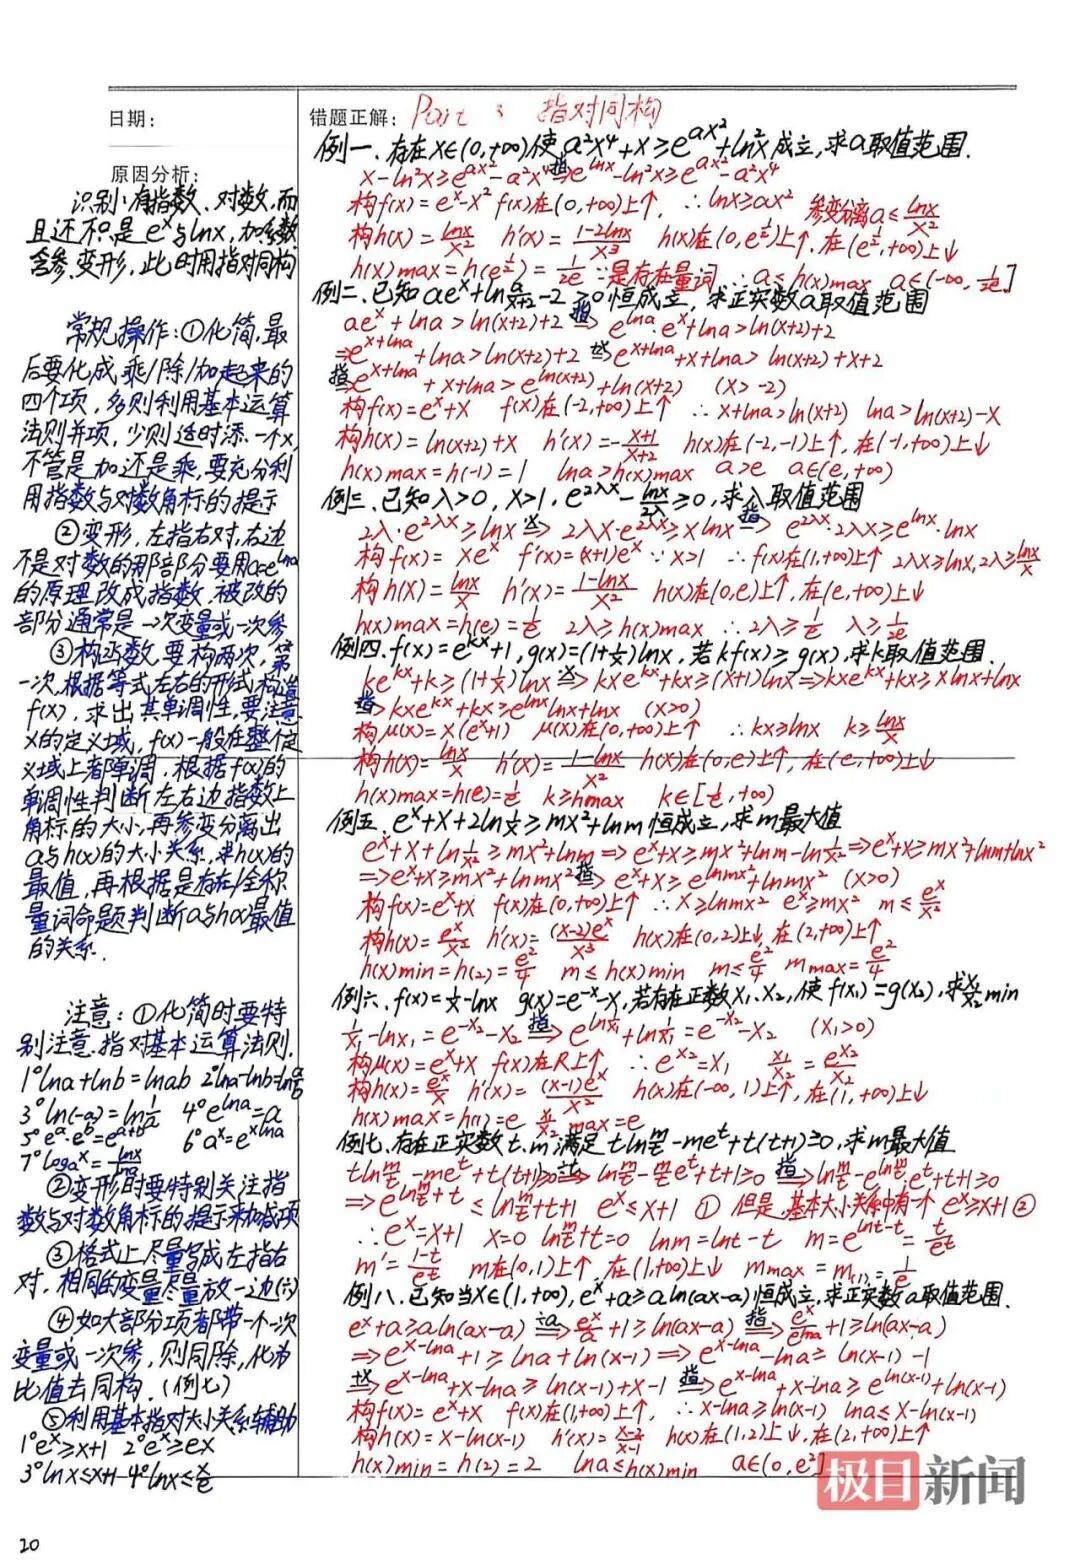 日期:
原因分析:
识别:有指数、对数,而
且还不只是e^x与lnx,加系数
含参、变形,此时用指对同构
常规操作:①化简,最
后要化成乘/除/加起来的
四个项,多则利用基本运算
法则并项,少则适时添一个x,
不管是加还是乘,要充分利
用指数与对数角标的提示
②变形,左指右对,右边
不是对数的那部分要用a=e^lna
的原理改成指数,被改的
部分通常是一次变量或一次参
③构函数,要构两次,第
一次,根据等式左右的形式构造
f(x),求出其单调性,要注意
x的定义域,f(x)一般在整个定
义域上都单调,根据f(x)的
单调性判断左右边指数上
角标的大小,再参变分离出
a与h(x)的大小关系,求h(x)的
最值,再根据是存在/全称
量词命题判断a与h(x)最值
的关系.
注意:①化简时要特
别注意.指对基本运算法则.
1°lna+lnb=lnab 2°lna-lnb=ln a/b
3°ln(-a)=ln 1/a 4°e^lna=a
5°e^a·e^b=e^(a+b) 6°a^x=e^(xlna)
7°log_a x=lnx/lna
②变形时要特别关注指
数与对数角标的提示来加减项
③格式上尽量写成左指右
对,相同的变量尽量放一边(六)
④如大部分项都带一个一次
变量或一次参,则同除,化为
比值去同构.(例七)
⑤利用基本指对大小关系辅助
1°e^x≥x+1 2°e^x≥ex
3°lnx≤x-1 4°lnx≤x/e
20
错题正解: Part 3 指对同构
例一.存在x∈(0,+∞)使a²x⁴+x≥e^(ax²)+ln²x成立,求a取值范围.
x-ln²x≥e^(ax²)-a²x⁴ 指⇒ e^lnx-ln²x≥e^(ax²)-a²x⁴
构f(x)=e^x-x² f(x)在(0,+∞)上↑, ∴lnx≥ax² 参变分离a≤lnx/x²
构h(x)=lnx/x² h'(x)=(1-2lnx)/x³ h(x)在(0,e^(1/2))上↑,在(e^(1/2),+∞)上↓
h(x)max=h(e^(1/2))=1/2e ∵是存在量词 ∴a≤h(x)max a∈(-∞,1/2e]
例二.已知ae^x+ln a/(x+2)-2>0恒成立,求正实数a取值范围
ae^x+lna>ln(x+2)+2 指⇒ e^lna·e^x+lna>ln(x+2)+2
⇒e^(x+lna)+lna>ln(x+2)+2 +x⇒ e^(x+lna)+x+lna>ln(x+2)+x+2
指⇒e^(x+lna)+x+lna>e^ln(x+2)+ln(x+2) (x>-2)
构f(x)=e^x+x f(x)在(-2,+∞)上↑ ∴x+lna>ln(x+2) lna>ln(x+2)-x
构h(x)=ln(x+2)+x h'(x)=-(x+1)/(x+2) h(x)在(-2,-1)上↑,在(-1,+∞)上↓
h(x)max=h(-1)=1 lna>h(x)max a>e a∈(e,+∞)
例三.已知λ>0,x>1,e^(2λx)-lnx/2λ≥0,求λ取值范围
2λ·e^(2λx)≥lnx ×x⇒ 2λx·e^(2λx)≥xlnx 指⇒ e^(2λx)·2λx≥e^lnx·lnx
构f(x)=xe^x f'(x)=(x+1)e^x ∵x>1 ∴f(x)在(1,+∞)上↑ 2λx≥lnx,2λ≥lnx/x
构h(x)=lnx/x h'(x)=(1-lnx)/x² h(x)在(0,e)上↑,在(e,+∞)上↓
h(x)max=h(e)=1/e 2λ≥h(x)max ∴2λ≥1/e λ≥1/2e
例四.f(x)=e^(kx)+1,g(x)=(1+1/x)lnx,若kf(x)≥g(x),求k取值范围.
ke^(kx)+k≥(1+1/x)lnx ×x⇒ kxe^(kx)+kx≥(x+1)lnx⇒kxe^(kx)+kx≥xlnx+lnx
指⇒kxe^(kx)+kx≥e^lnx lnx+lnx (x>0)
构μ(x)=x(e^x+1) μ(x)在(0,+∞)上↑ ∴kx≥lnx k≥lnx/x
构h(x)=lnx/x h'(x)=(1-lnx)/x² h(x)在(0,e)上↑,在(e,+∞)上↓
h(x)max=h(e)=1/e k≥hmax k∈[1/e,+∞)
例五.e^x+x+2ln 1/x≥mx²+lnm恒成立,求m最大值
e^x+x+ln 1/x²≥mx²+lnm⇒e^x+x≥mx²+lnm-ln 1/x²⇒e^x+x≥mx²+lnm+lnx²
⇒e^x+x≥mx²+lnmx² 指⇒ e^x+x≥e^lnmx²+lnmx² (x>0)
构f(x)=e^x+x f(x)在(0,+∞)上↑ ∴x≥lnmx² e^x≥mx² m≤e^x/x²
构h(x)=e^x/x² h'(x)=(x-2)e^x/x³ h(x)在(0,2)上↓,在(2,+∞)上↑
h(x)min=h(2)=e²/4 m≤h(x)min m≤e²/4 mmax=e²/4
例六.f(x)=1/x-lnx g(x)=e^-x-x,若存在正数x₁、x₂,使f(x₁)=g(x₂),求x₁/x₂min
1/x₁-lnx₁=e^-x₂-x₂ 指⇒ e^ln 1/x₁+ln 1/x₁=e^-x₂-x₂ (x₁>0)
构μ(x)=e^x+x f(x)在R上↑ ∴e^x₂=x₁ x₁/x₂=e^x₂/x₂
构h(x)=e^x/x h'(x)=(x-1)e^x/x² h(x)在(-∞,1)上↑,在(1,+∞)上↓
h(x)max=h(1)=e x₁/x₂max=e
例七.存在正实数t、m满足tln m/t-me^t+t(t+1)≥0,求m最大值
tln m/t-me^t+t(t+1)≥0 ÷t⇒ ln m/t-m/t e^t+t+1≥0 指⇒ ln m/t-e^ln m/t e^t+t+1≥0
⇒e^(ln m/t+t)≤ln m/t+t+1 e^x≤x+1 ① 但是,基本大小关系中有一个e^x≥x+1②
∴e^x=x+1 x=0 ln m/t+t=0 lnm=lnt-t m=e^(lnt-t)=t/e^t
m'=(1-t)/e^t m在(0,1)上↑在(1,+∞)上↓ mmax=m(1)=1/e
例八.已知当x∈(1,+∞),e^x+a≥aln(ax-a)恒成立,求正实数a取值范围.
e^x+a≥aln(ax-a) ÷a⇒ e^x/a+1≥ln(ax-a) 指⇒ e^x/e^lna+1≥ln(ax-a)
⇒e^(x-lna)+1≥lna+ln(x-1)⇒e^(x-lna)-lna≥ln(x-1)-1
+x⇒e^(x-lna)+x-lna≥ln(x-1)+x-1 指⇒e^(x-lna)+x-lna≥e^ln(x-1)+ln(x-1)
构f(x)=e^x+x f(x)在(1,+∞)上↑, ∴x-lna≥ln(x-1) lna≤x-ln(x-1)
构h(x)=x-ln(x-1) h'(x)=(x-2)/(x-1) h(x)在(1,2)上↓,在(2,+∞)上↑
h(x)min=h(2)=2 lna≤h(x)min a∈(0,e²]
极目新闻